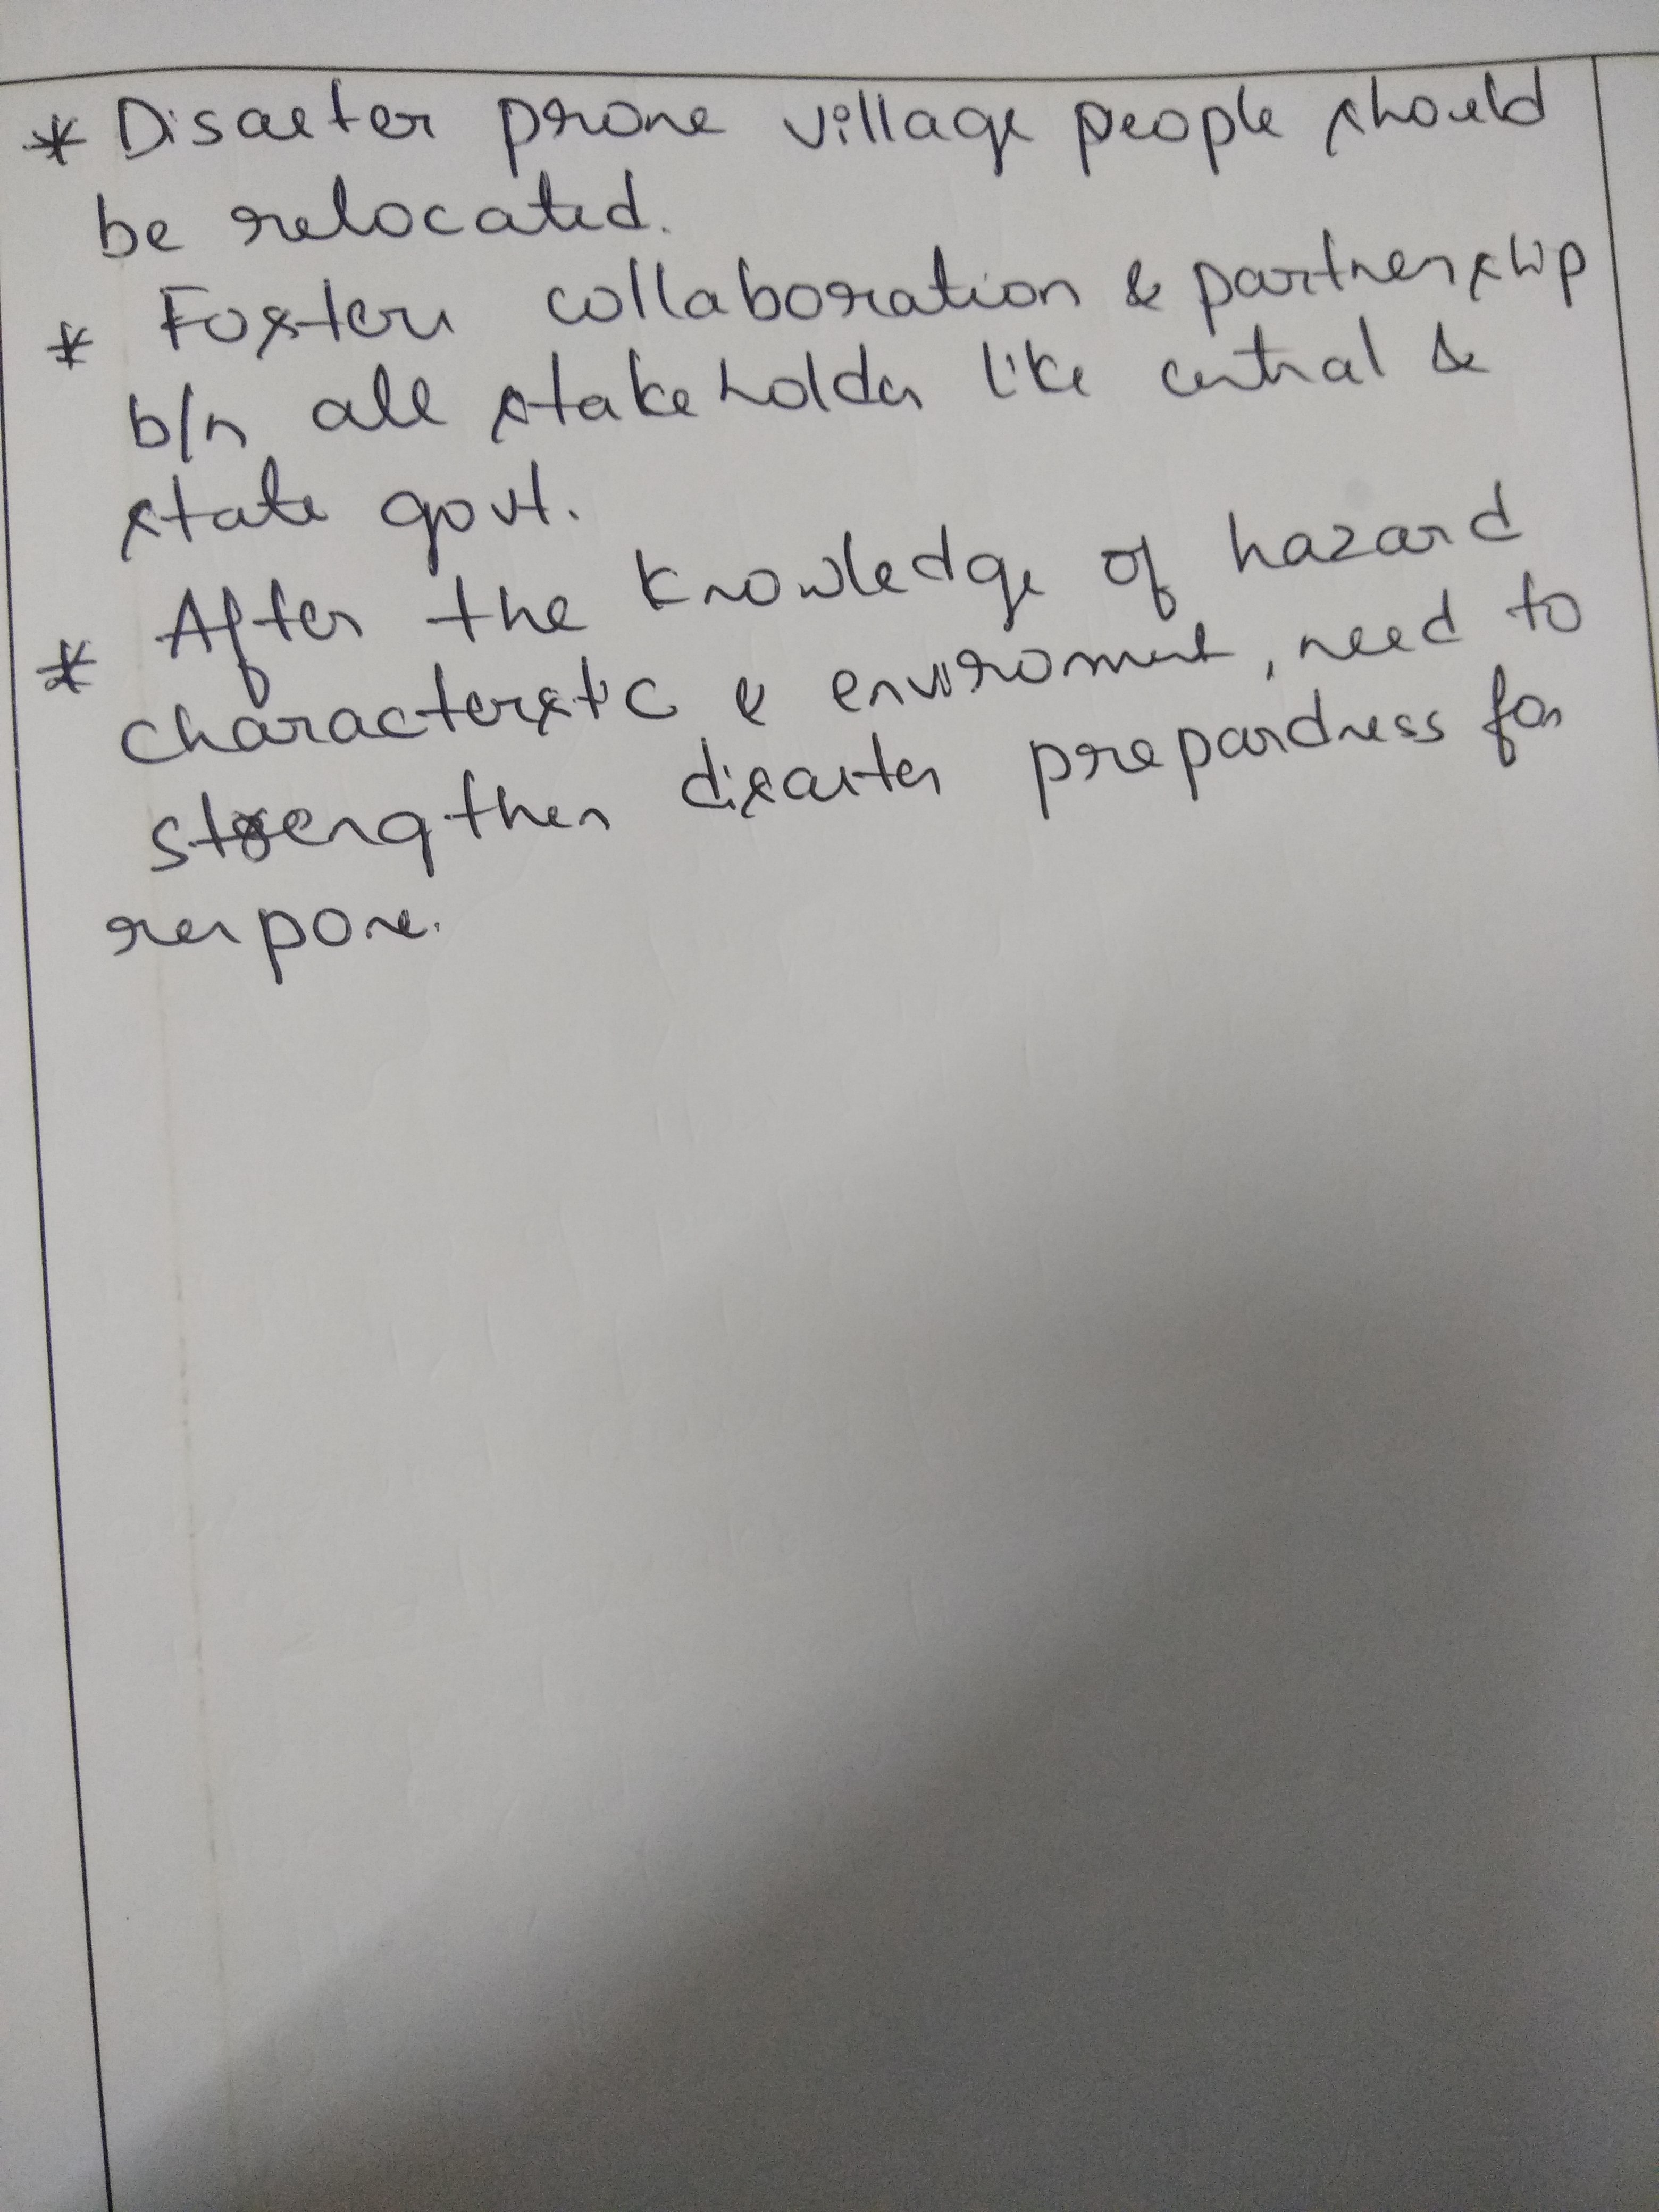 * Disaster prone village people should
be relocated.
* Foster collaboration & partnership
b/n all stakeholder like central &
state govt.
* After the knowledge of hazard
characterstic & enviroment, need to
strengthen disaster prepardness for
respone.